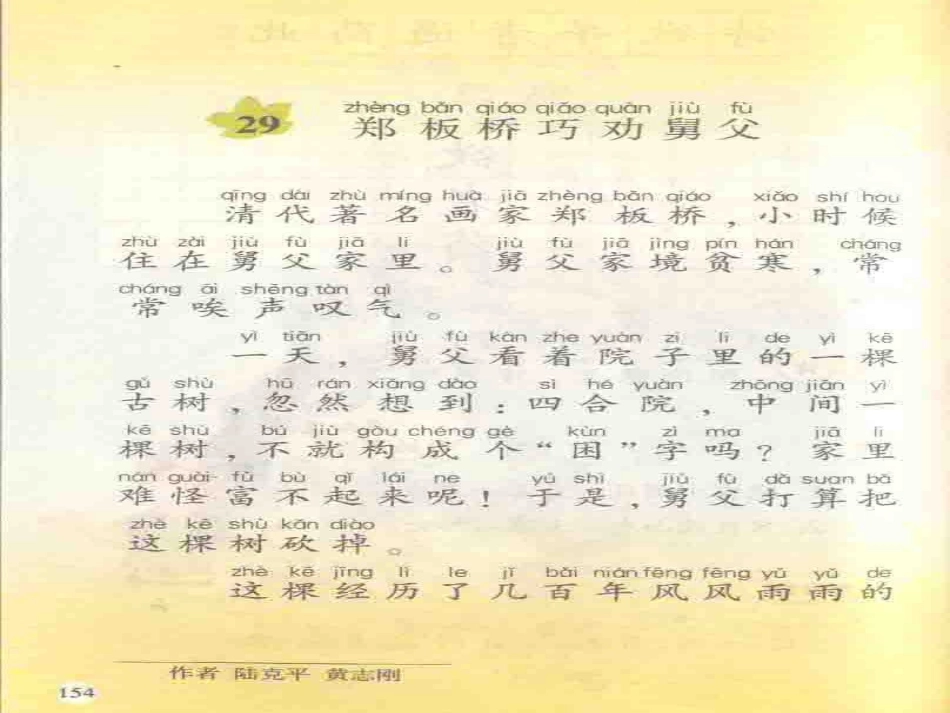 29
zhèng bǎn qiáo qiǎo quàn jiù fù
郑板桥巧劝舅父
qīng dài zhù míng huà jiā zhèng bǎn qiáo xiǎo shí hou
清代著名画家郑板桥，小时候
zhù zài jiù fù jiā li jiù fù jiā jìng pín hán cháng
住在舅父家里。舅父家境贫寒，常
cháng āi shēng tàn qì
常唉声叹气。
yì tiān jiù fù kàn zhe yuàn zi li de yì kē
一天，舅父看着院子里的一棵
gǔ shù hū rán xiǎng dào sì hé yuàn zhōng jiān yì
古树，忽然想到：四合院，中间一
kē shù bú jiù gòu chéng gè kùn zì ma jiā li
棵树，不就构成个“困”字吗？家里
nán guài fù bù qǐ lái ne yú shì jiù fù dǎ suan bǎ
难怪富不起来呢！于是，舅父打算把
zhè kē shù kǎn diào
这棵树砍掉。
zhè kē jīng lì le jǐ bǎi nián fēng fēng yǔ yǔ de
这棵经历了几百年风风雨雨的
作者 陆克平 黄志刚
154